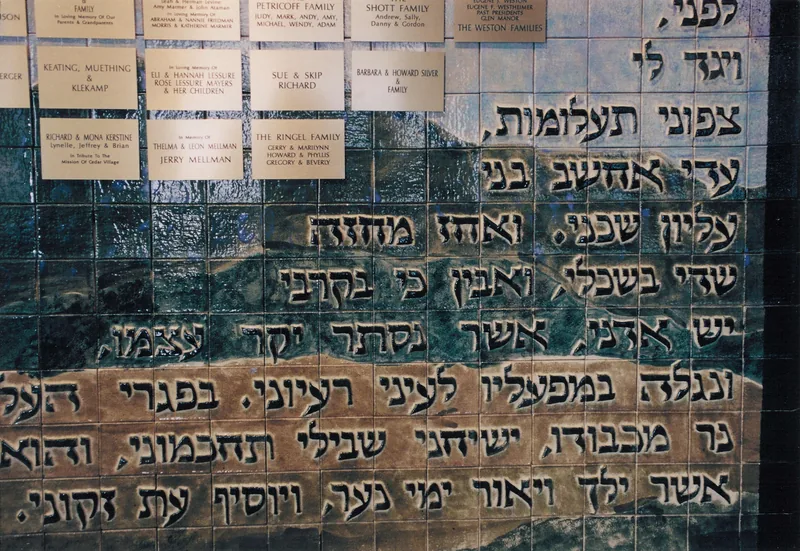 FAMILY
In Loving Memory Of Our
Parents & Grandparents
Amy Manter & John Niaman
In Loving Memory Of
ABRAHAM & NANNIE FRIEDMAN
MORRIS & KATHERINE MARMER
PETRICOFF FAMILY
JUDY, MARK, ANDY, AMY,
MICHAEL, WENDY, ADAM
THE
SHOTT FAMILY
Andrew, Sally,
Danny & Gordon
EUGENE F. WESTHEIMER
PAST PRESIDENTS
GLEN MANOR
THE WESTON FAMILIES
KEATING, MUETHING
&
KLEKAMP
In Loving Memory Of
ELI & HANNAH LESSURE
ROSE LESSURE MAYERS
& HER CHILDREN
SUE & SKIP
RICHARD
BARBARA & HOWARD SILVER
&
FAMILY
RICHARD & MONA KERSTINE
Lynelle, Jeffrey & Brian
In Tribute To The
Mission Of Cedar Village
In Memory Of
THELMA & LEON MELLMAN
JERRY MELLMAN
THE RINGEL FAMILY
GERRY & MARILYNN
HOWARD & PHYLLIS
GREGORY & BEVERLY
לפני,
ויגד לי
צפוני תעלומות,
עדי אחשב בני
עליון שכני. ואחז מחזה
שדי בשכלי, ואבין כי בקרבי
יש אדני, אשר נסתר יקר עצמו,
ונגלה במפעליו לעיני רעיוני. בפגרי העל
נר מכבודו, ישיחני שבילי תחכמוני, והוא
אשר ילך ויאור ימי נער, ויוסיף עת זקוני.